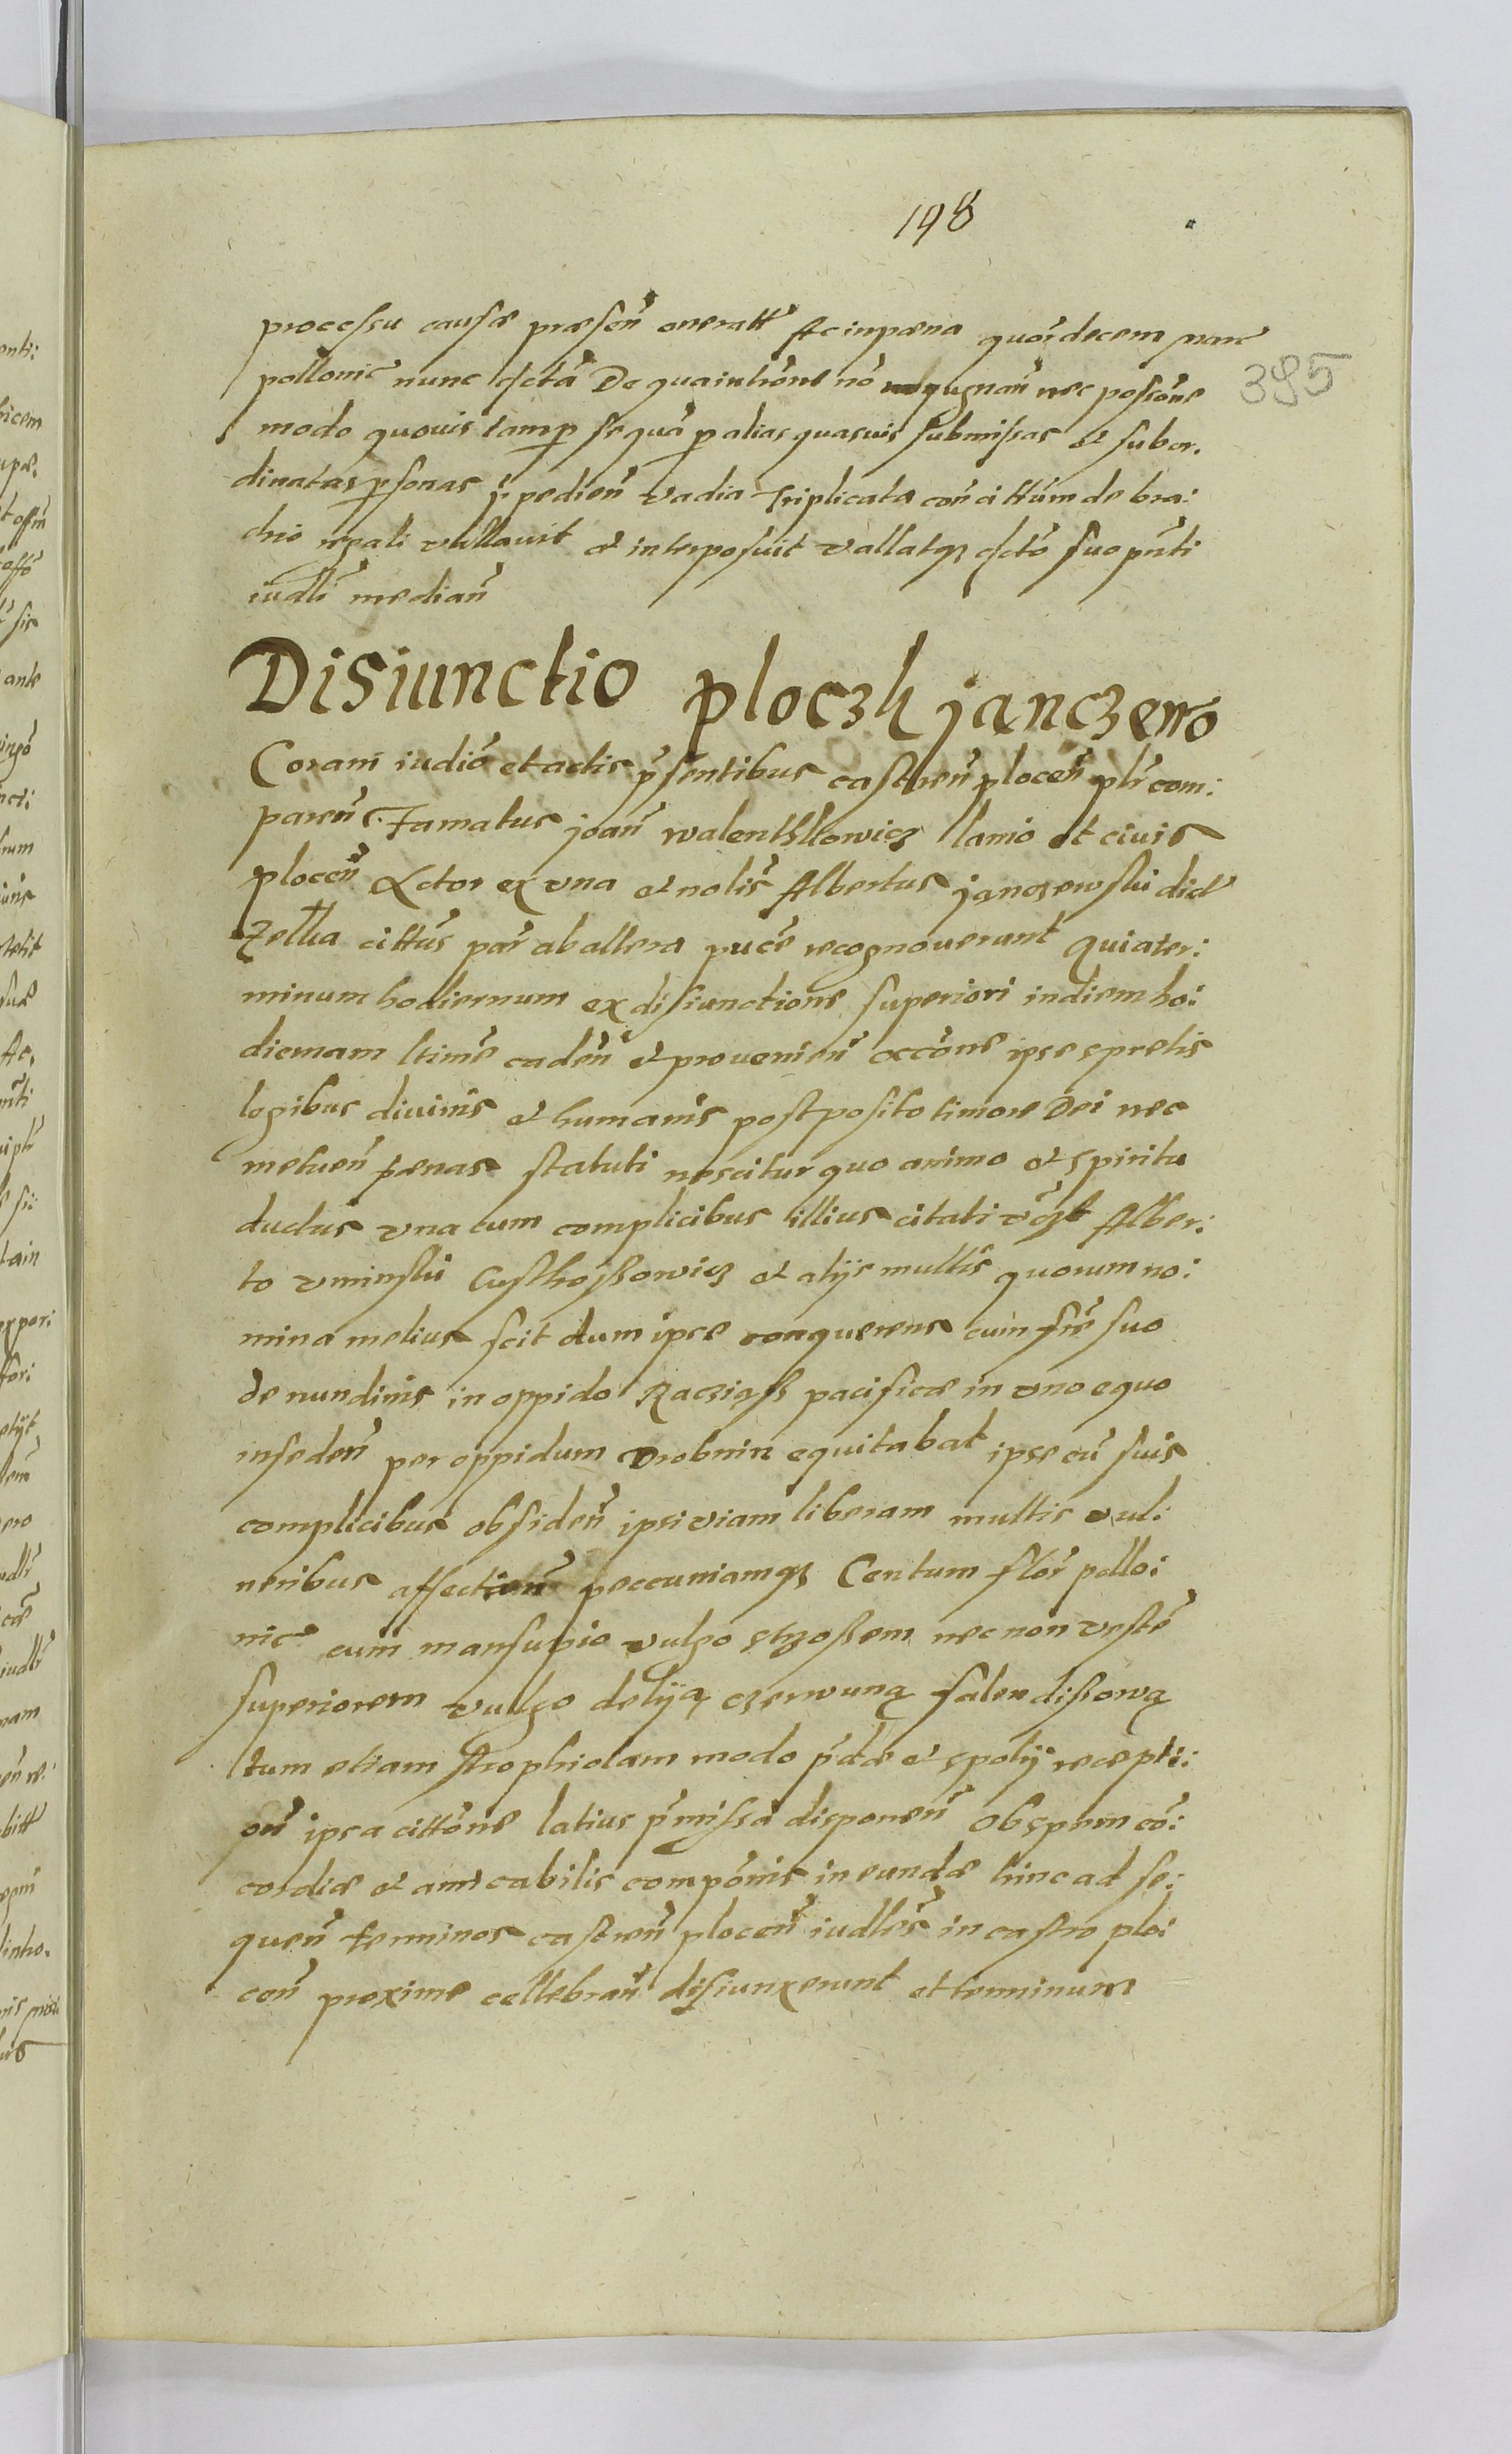 198
395
processu causæ præsen̄ oneratt Ac in pæna quor̄ decem marc
pollonic̄ nunc dctā De qua intrōne nō repugnan̄ nec possōne
modo quovis tam per se quā p alias quasvis submissas et subor.
dinatas psonas īpedien̄ vadia triplicata con̄ cittum de bra:
chio regali vallavit et interposuit vallatqz dctō suo pn̄ti
iudli median̄
Disiunctio ploczk janczewo
Coram iudiō et actis p̄sentibus castren̄ plocen̄ pl̄r com:
paren̄s. Famatus joan̄ walenthkowicz lanio et civis
plocen̄ Actor ex vna et nolis̄ Albertus janczewski dict
Zelka cittus par̄ ab altera pucē recognoverunt Quia ter:
minum hodiernum ex disiunctione superiori in diem ho:
diernam ltimē caden̄ et provenien̄ occōne ipse spretis
legibus divinis et humanis postposito timore Dei nec
metuen̄ pænas statuti nescitur quo animo et spiritu
ductus vna cum complicibus illius citati Alber:
to vminski et alijs multis quorum no:
mina melius scit dum ipse conquerens cum frē suo
de nundinis in oppido Racziąsz pacificæ in vno equo
inseden̄ per oppidum Drobnin equitabat ipse cū suis
complicibus obsiden̄ ipsi viam liberam multis vul:
neribus peccuniamqz Centum flor̄ pollo:
nic̄ cum mansupio vulgo necnon vestē
superiorem vulgo deliją czerwuną falendissową
tum etiam strophiolam modo p̄dæ et spolij recepti:
on̄ ipsa cittōne latius p̄missa disponen̄ Ob spem cō:
cordiæ et amicabilis compōnis ineundæ hinc ad se:
quen̄ terminos castren̄ plocen̄ iudles̄ in castro plo:
cen̄ proxime cellebran̄ disiunxerunt et terminum